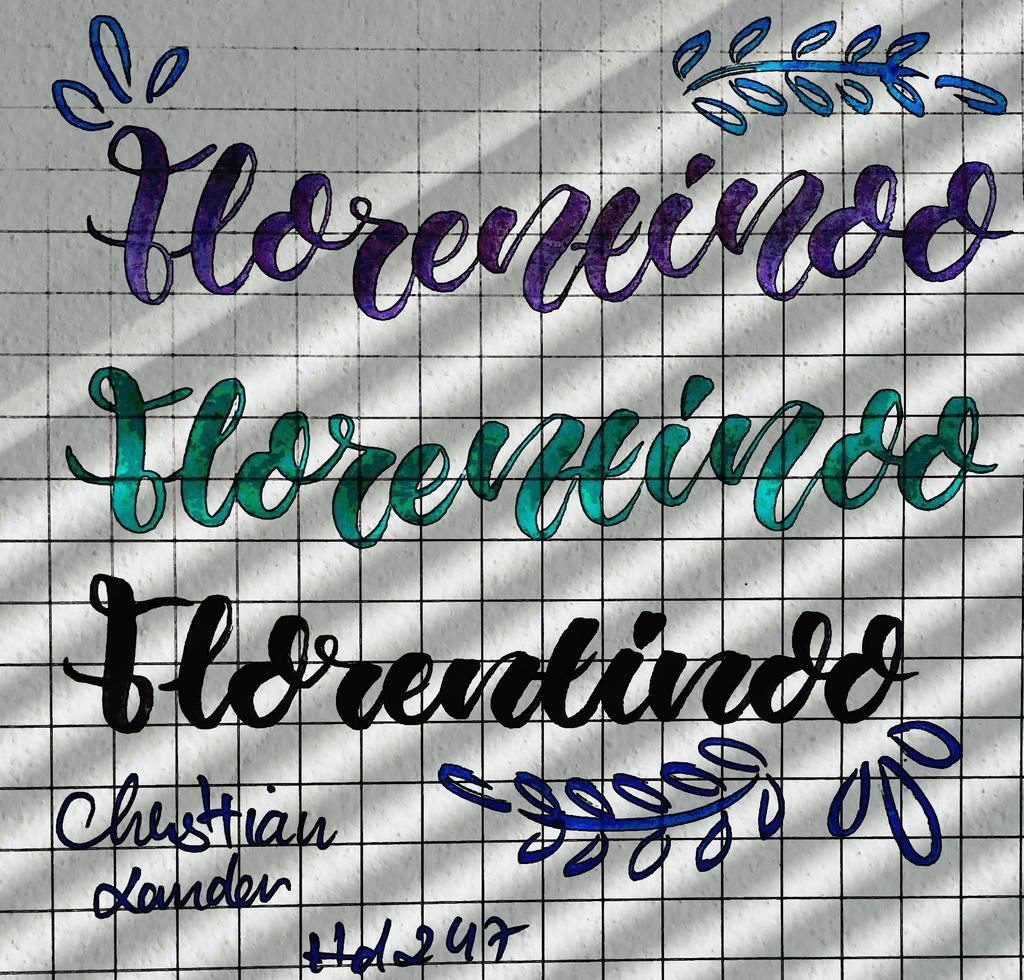 Florentinoo
Florentinoo
Florentinoo
Christian
Hd247